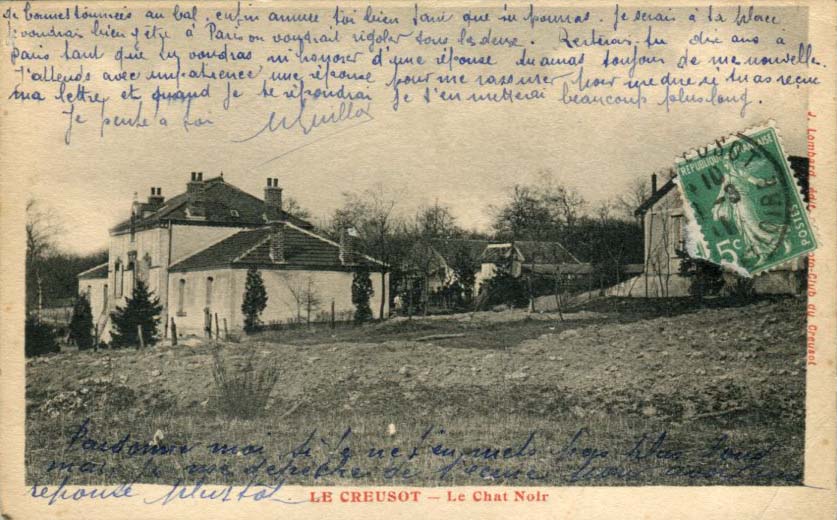 de bonnes tournées au bal, enfin amuse toi bien tant que tu pourras. Je serais à ta place
voudrais bien y être à Paris on voudrait rigoler tous les deux. Resteras-tu dix ans à
Paris tant que tu voudras m'honorer d'une réponse tu auras toujours de me nouvelle.
J'attends avec impatience une réponse pour me rassurer pour me dire si tu as reçue
ma lettre, et quand je te répondrai je t'en metterai beaucoup plus long.
Je pense à toi
RÉPUBLIQUE FRANÇAISE
POSTES
5c
J. Lombard, édit.
Club du Creusot
Pardonne moi si je ne t'en mets pas plus long
mais je me dépêche de
réponse plus tôt
LE CREUSOT – Le Chat Noir